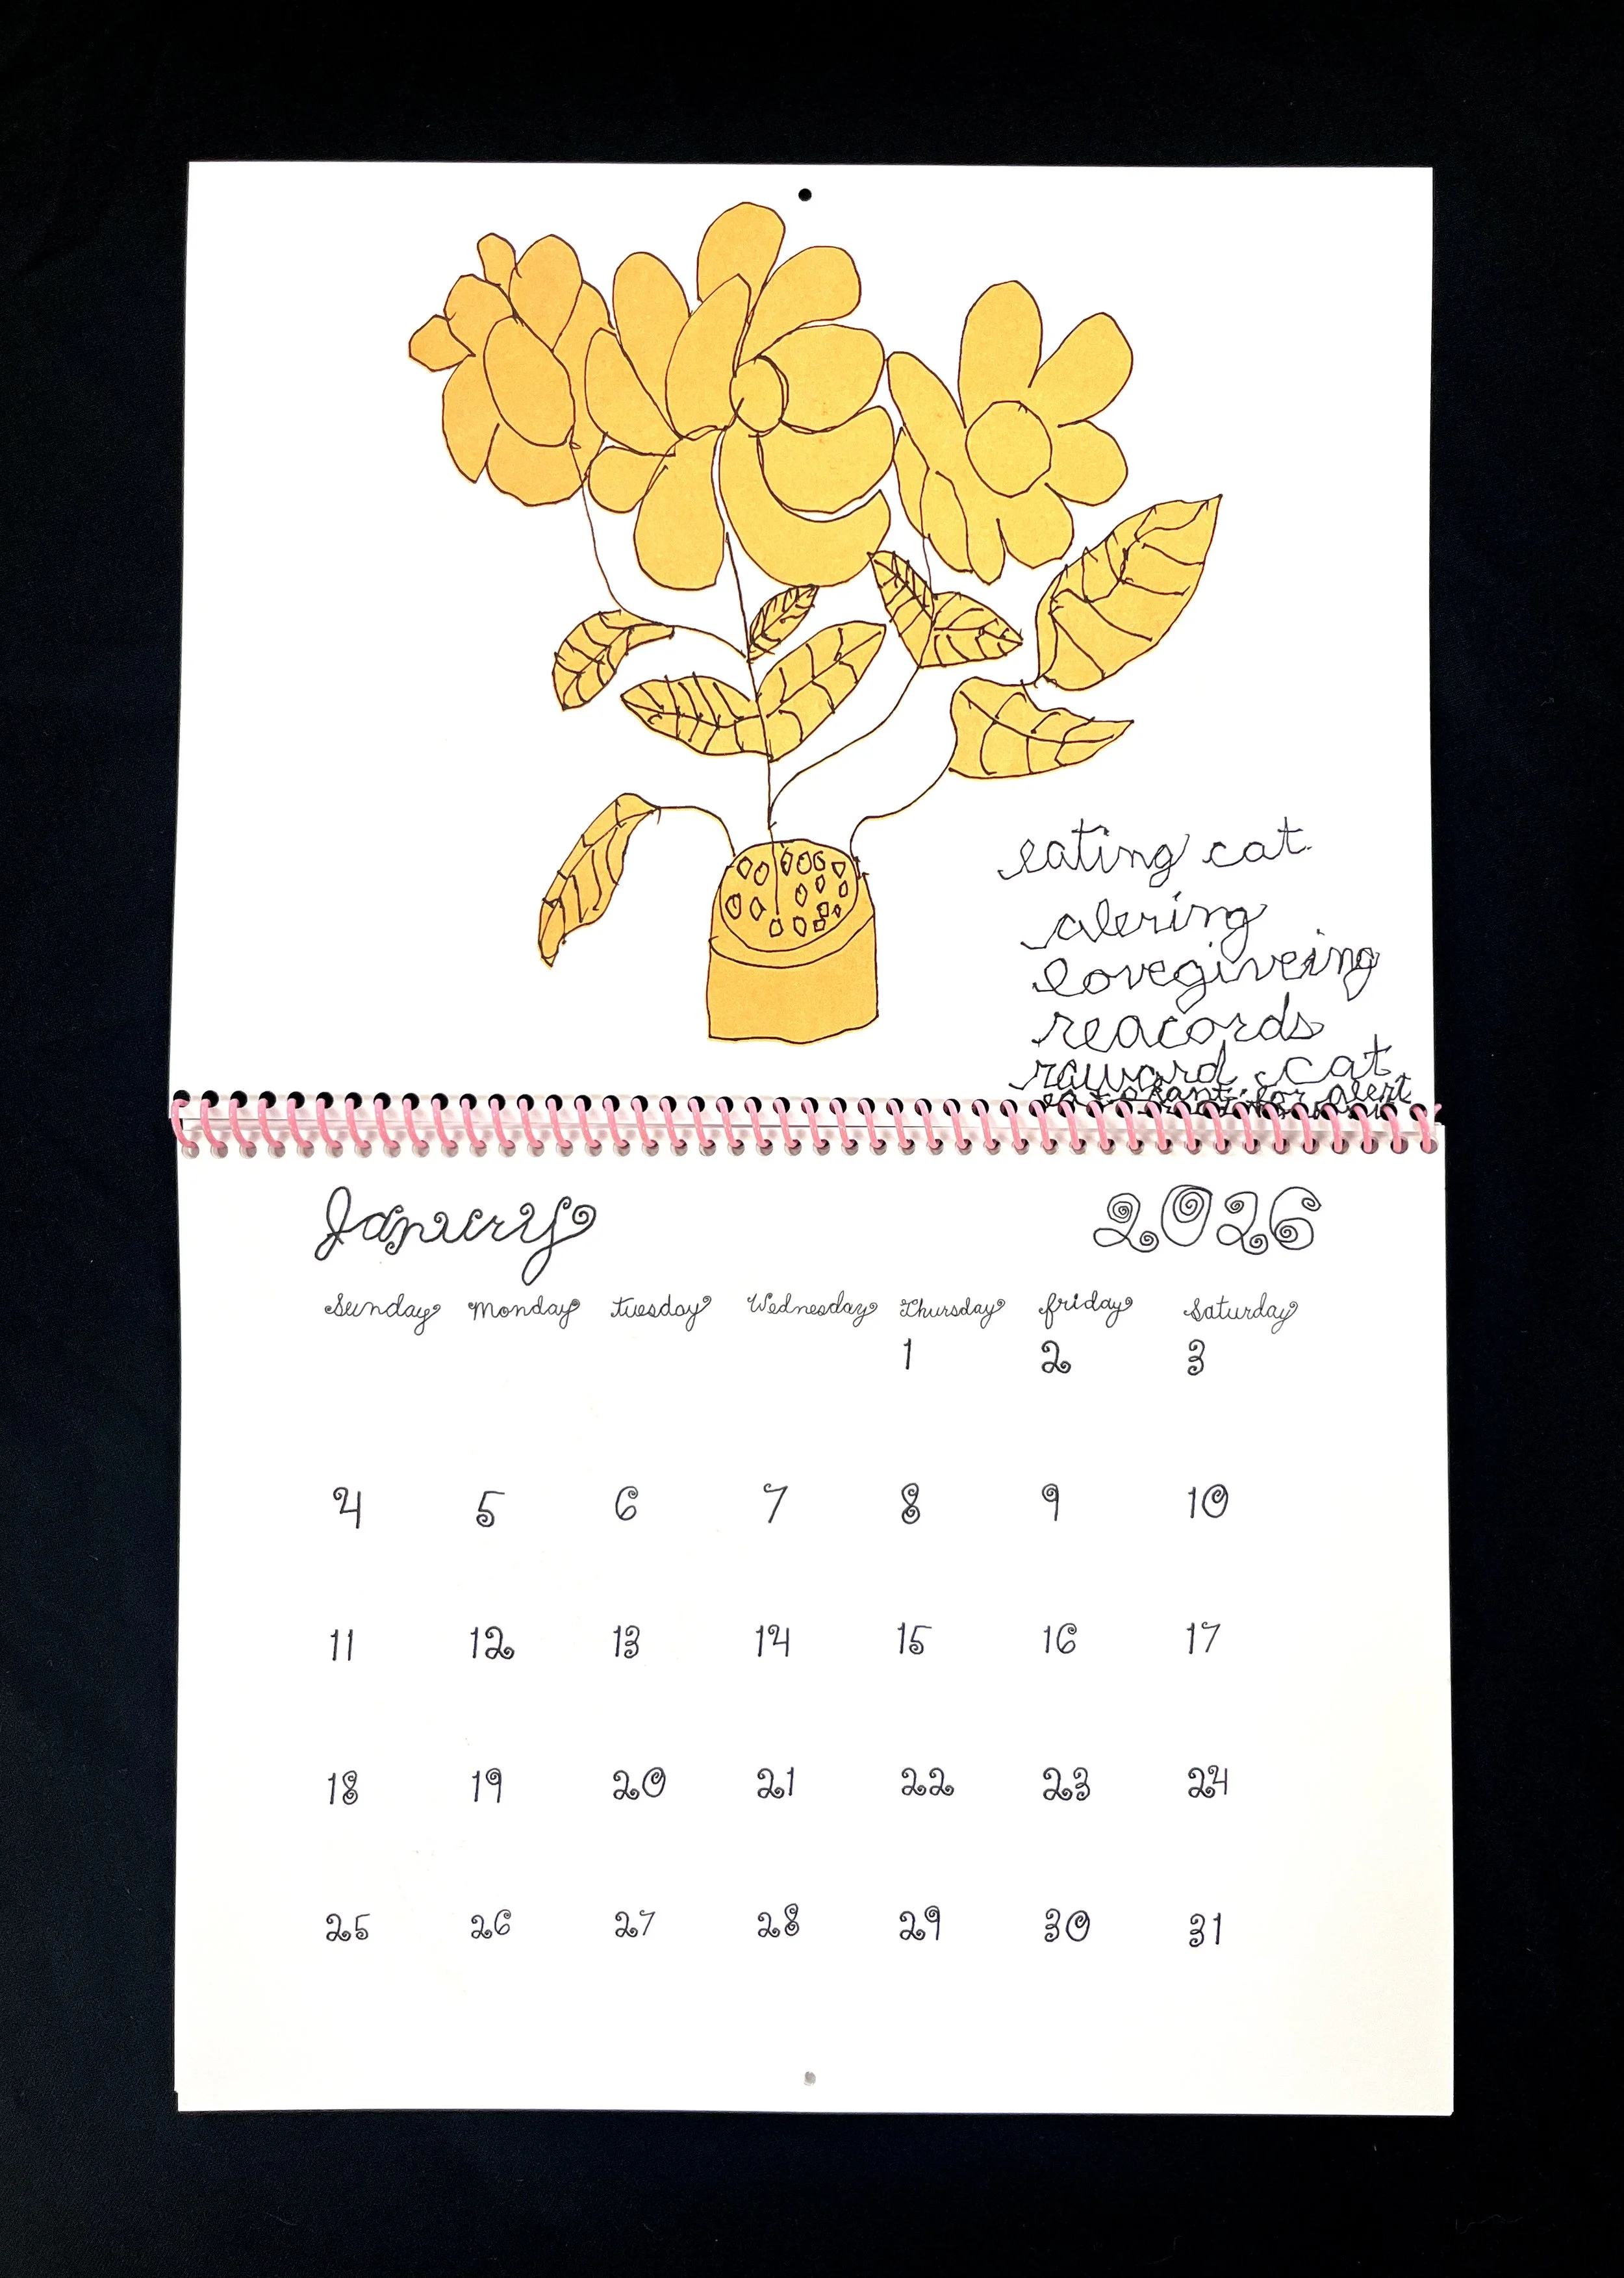 eating cat
alering
lovegiveing
reacords
raward cat
for alert
Janury 2026
Sunday Monday tuesday Wednesday Thursday friday Saturday
1 2 3
4 5 6 7 8 9 10
11 12 13 14 15 16 17
18 19 20 21 22 23 24
25 26 27 28 29 30 31